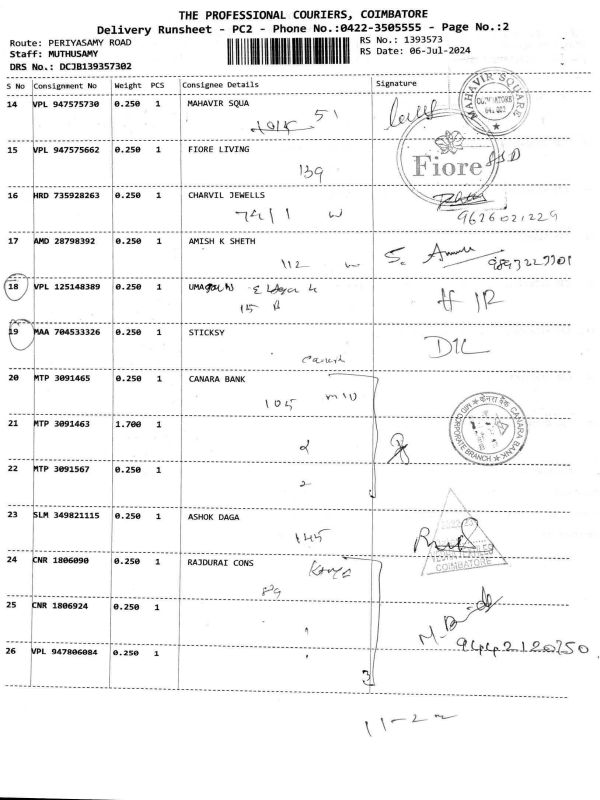 THE PROFESSIONAL COURIERS, COIMBATORE
Delivery Runsheet - PC2 - Phone No.:0422-3505555 - Page No.:2
Route: PERIYASAMY ROAD RS No.: 1393573
Staff: MUTHUSAMY RS Date: 06-Jul-2024
DRS No.: DCJB139357302
S No Consignment No Weight PCS Consignee Details Signature
14 VPL 947575730 0.250 1 MAHAVIR SQUA
51
MAHAVIR SQUARE
COIMBATORE
15 VPL 947575662 0.250 1 FIORE LIVING
139
Fiore
16 HRD 735928263 0.250 1 CHARVIL JEWELLS
74/1 w
9626021229
17 AMD 28798392 0.250 1 AMISH K SHETH
112
18 VPL 125148389 0.250 1
15 B
19 MAA 704533326 0.250 1 STICKSY
20 MTP 3091465 0.250 1 CANARA BANK
105
केनरा बैंक CANARA BANK
MID CORPORATE BRANCH
21 MTP 3091463 1.700 1
22 MTP 3091567 0.250 1
23 SLM 349821115 0.250 1 ASHOK DAGA
145
COIMBATORE
24 CNR 1806090 0.250 1 RAJDURAI CONS
25 CNR 1806924 0.250 1
26 VPL 947806084 0.250 1
3